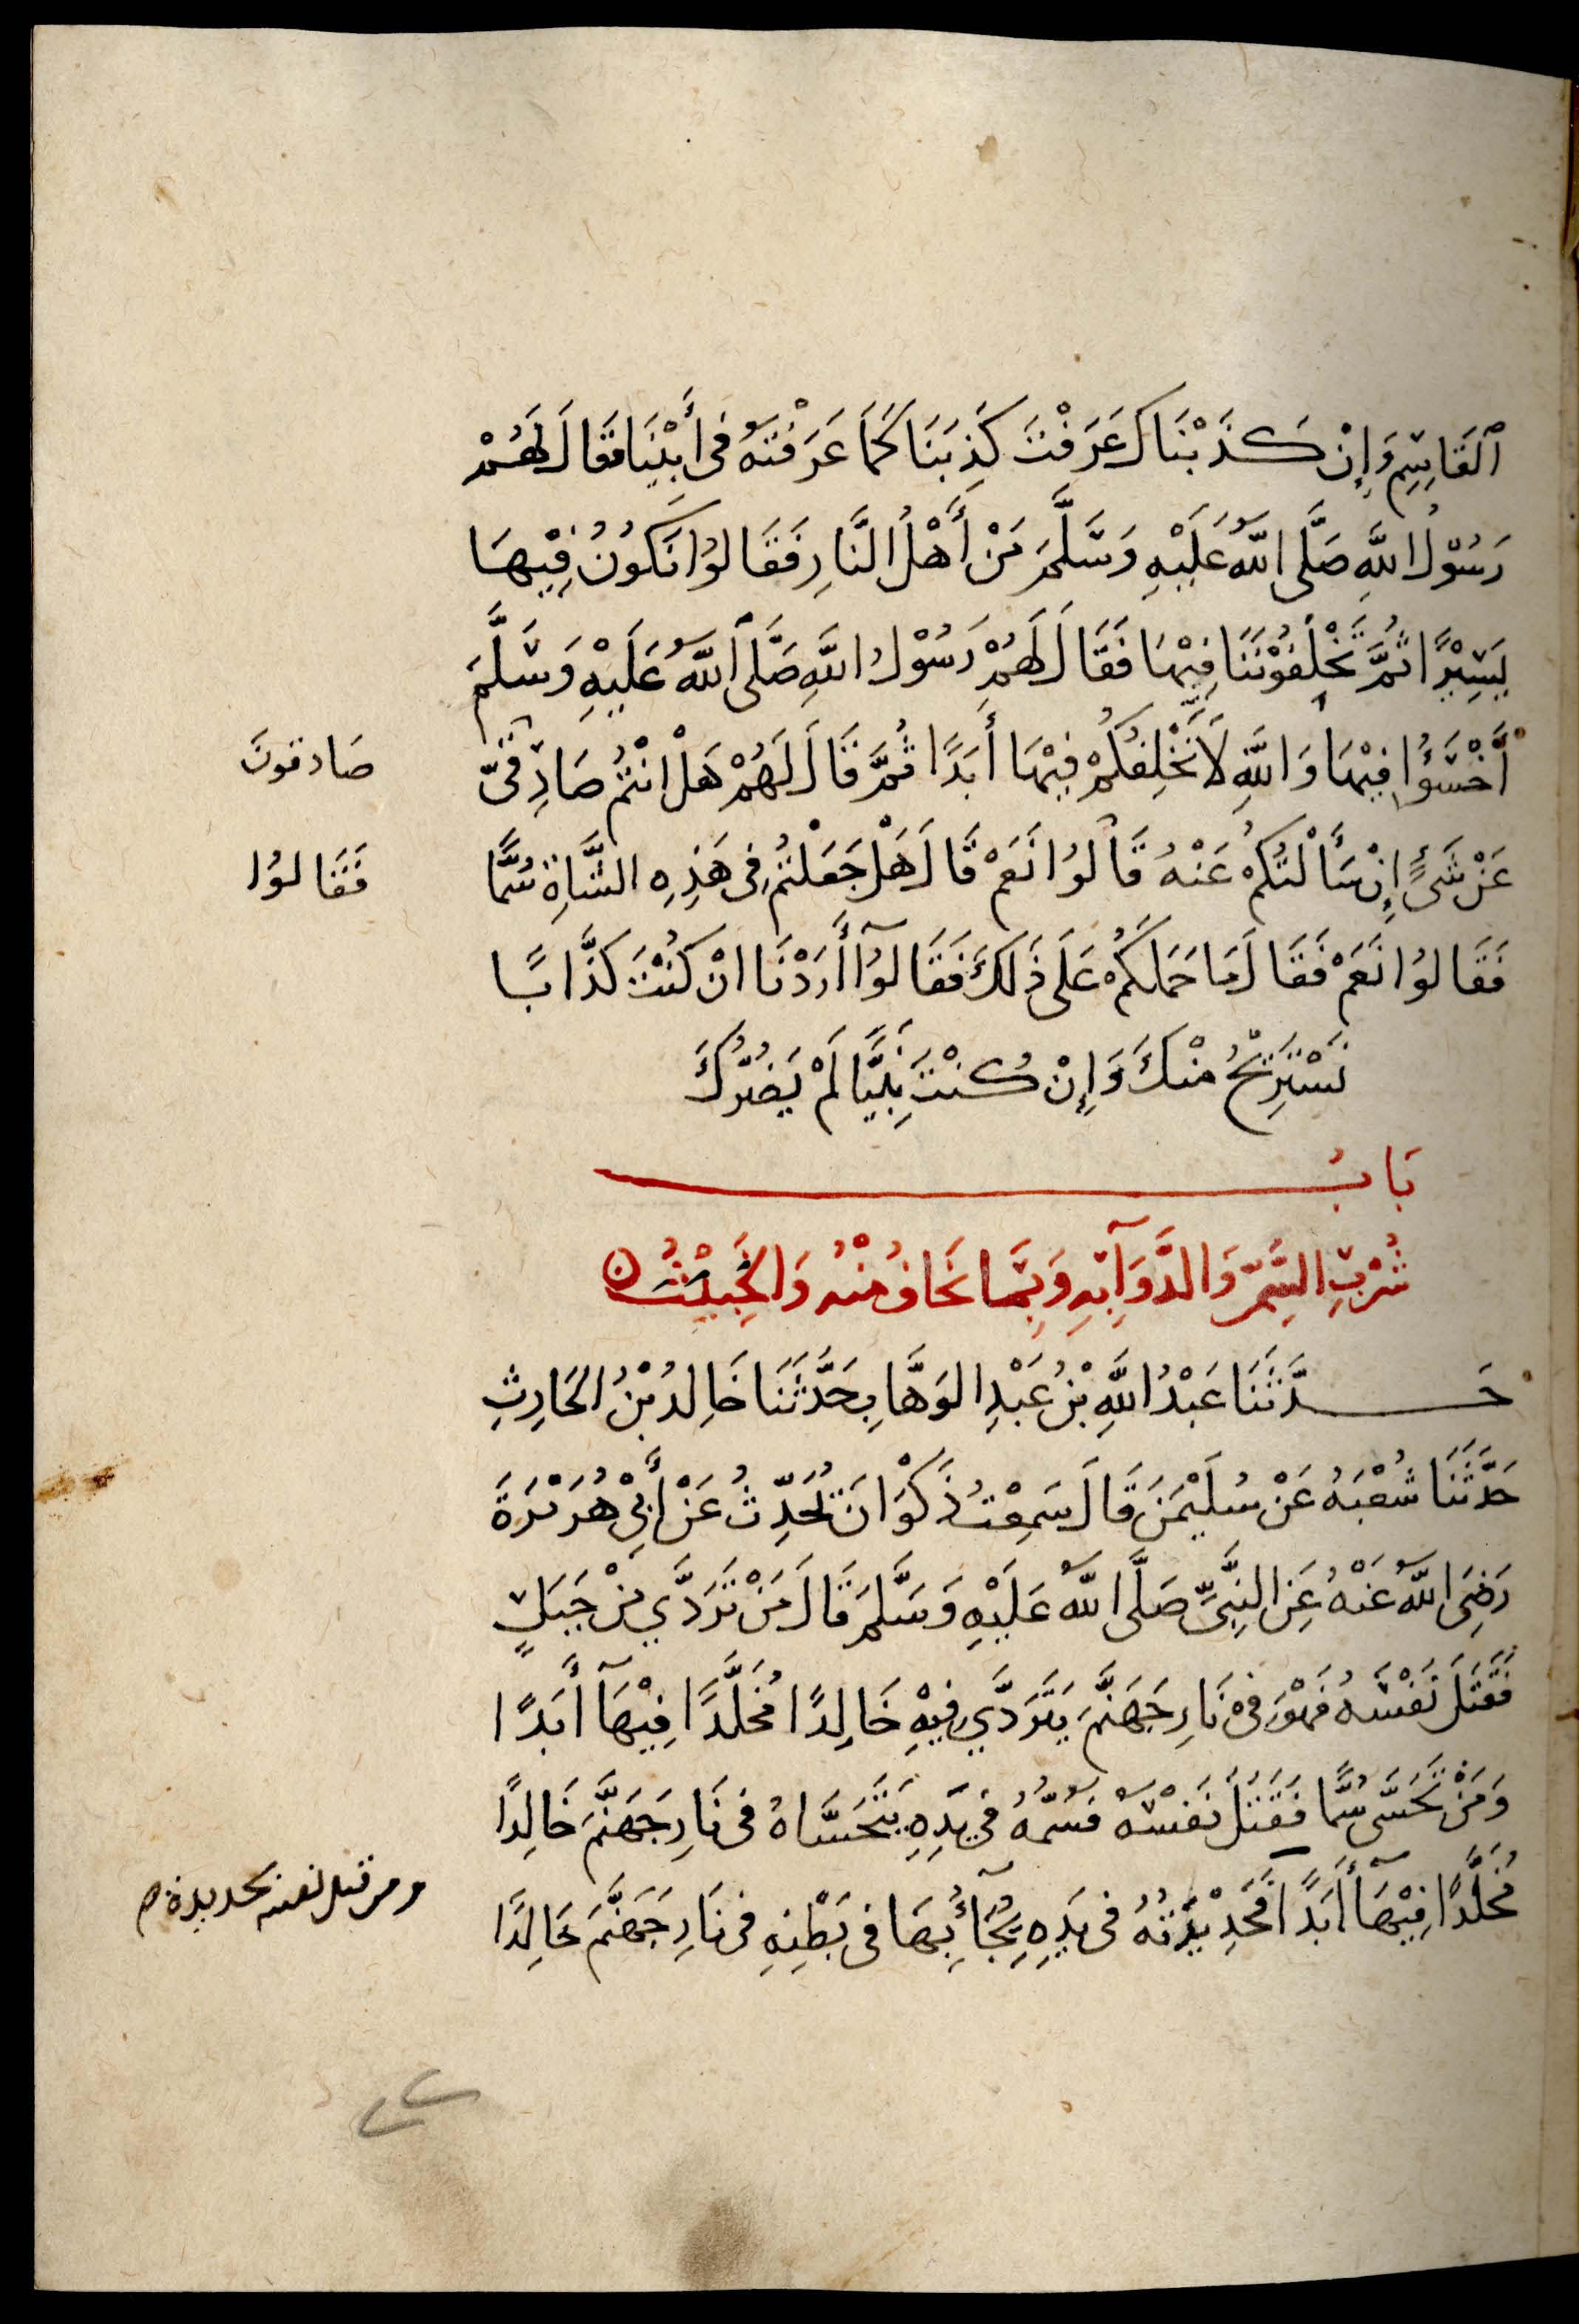 ٱلقَاسِمِ وَإِنْ كَذَبْنَاكَ عَرَفْتَ كَذِبَنَا كَمَا عَرَفْتَهُ فِى أَبِيْنَا فَقَالَ لَهُمْ
رَسُوْلُ اللَّهِ صَلَّى اللَّهُ عَلَيْهِ وَسَلَّمَ مَنْ أَهْلُ النَّارِ فَقَالُوْا نَكُوْنُ فِيْهَا
يَسِيْرًا ثُمَّ تَخْلِفُوْنَنَا فِيْهَا فَقَالَ لَهُمْ رَسُوْلُ اللَّهِ صَلَّى اللَّهُ عَلَيْهِ وَسَلَّمَ
ٱخْسَؤُا فِيْهَا وَاللَّهِ لَا نَخْلِفُكُمْ فِيْهَا أَبَدًا ثُمَّ قَالَ لَهُمْ هَلْ انْتُمْ صَادِقِىَّ
صَادقونَ
عَنْ شَىْءٍ إِنْ سَأَلْتُكُمْ عَنْهُ قَالُوْا نَعَمْ قَالَ هَلْ جَعَلْتُمْ فِى هَذِهِ الشَّاةِ سُمًّا
فَقَالُوْا
فَقَالُوْا نَعَمْ فَقَالَ مَا حَمَلَكُمْ عَلَى ذَلِكَ فَقَالُوْآ أَرَدْنَا انْ كُنْتَ كَذَّابًا
نَسْتَرِيْحُ مِنْكَ وَإِنْ كُنْتَ نَبِيًّا لَمْ يَضُرُّكَ
بَابُ
شُرْبِ السَّمِّ وَالدَّوَآءِ بِهِ وَبِمَا يَخَافُ مِنْهُ وَالخَبِيْثُ
حَدَّثَنَا عَبْدُ اللَّهِ بْنُ عَبْدِ الوَهَّابِ حَدَّثَنَا خَالِدُ بْنُ الحَارِثِ
حَدَّثَنَا شُعْبَهُ عَنْ سُلَيْمَنَ قَالَ سَمِعْتُ ذَكْوَانَ يُحَدِّثُ عَنْ أَبِىْ هُرَيْرَةَ
رَضِىَ اللَّهُ عَنْهُ عَنِ النَّبِىِّ صَلَّى اللَّهُ عَلَيْهِ وَسَلَّمَ قَالَ مَنْ تَرَدَّي مِنْ جَبَلٍ
فَقَتَلَ نَفْسَهُ فَهْوَ فِىْ نَارِ جَهَنَّمَ يَتَرَدَّي فِيْهِ خَالِدًا مُخَلَّدًا فِيْهَآ أَبَدًا
وَمَنْ تَحَسَّى سُمًّا فَقَتَلَ نَفْسَهُ فَسُمُّهُ فِى يَدِهِ يَتَحَسَّاهُ فِى نَارِ جَهَنَّمَ خَالِدًا
مُخَلَّدًا فِيْهَآ أَبَدًا فَحَدِيْدَتُهُ فِى يَدِهِ يَجَأُ بِهَا فِى بَطْنِهِ فِى نَارِ جَهَنَّمَ خَالِدًا
ومن قتل نفسه بحديدة